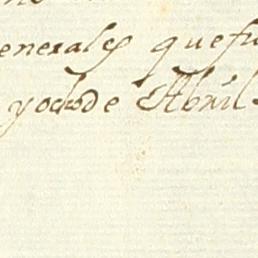 enerales que fu
y ocho de Abril